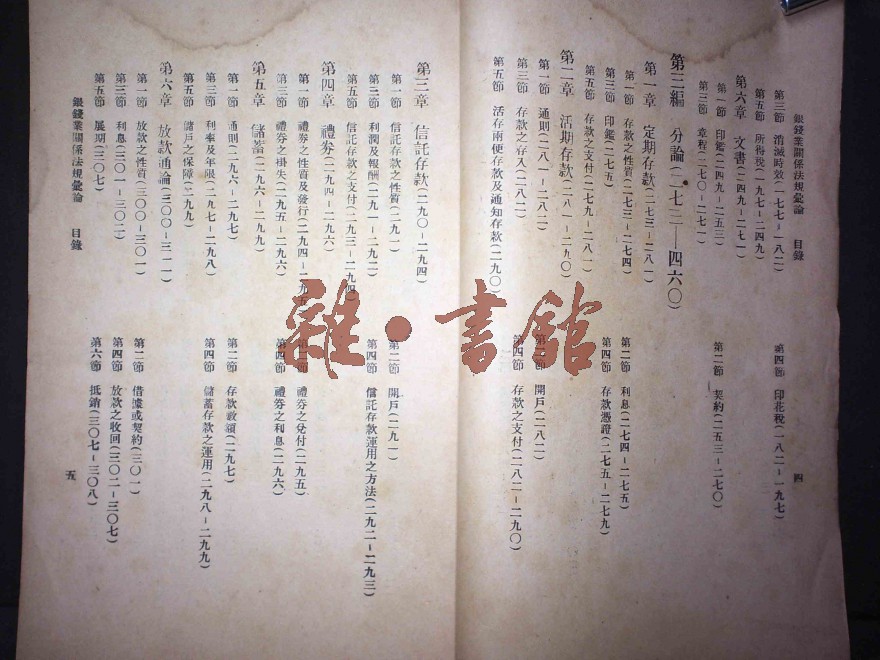 銀錢業關係法規彙論　目錄
四
第三節　消滅時效(一七七－一八二)
第四節　印花稅(一八二－一九七)
第五節　所得稅(一九七－二四九)
第六章　文書(二四九－二七一)
第一節　印鑑(二四九－二五三)
第二節　契約(二五三－二七〇)
第三節　章程(二七〇－二七一)
第三編　分論(二七三——四六〇)
第一章　定期存款(二七三－二八一)
第一節　存款之性質(二七三－二七四)
第二節　利息(二七四－二七五)
第三節　印鑑(二七五)
第四節　存款憑證(二七五－二七九)
第五節　存款之支付(二七九－二八一)
第二章　活期存款(二八一－二九〇)
第一節　通則(二八一－二八二)
第二節　開戶(二八二)
第三節　存款之存入(二八二)
第四節　存款之支付(二八二－二九〇)
第五節　活存兩便存款及通知存款(二九〇)
第三章　信託存款(二九〇－二九四)
第一節　信託存款之性質(二九一)
第二節　開戶(二九一)
第三節　利潤及報酬(二九一－二九二)
第四節　信託存款運用之方法(二九二－二九三)
第五節　信託存款之支付(二九三－二九四)
第四章　禮券(二九四－二九六)
第一節　禮券之性質及發行(二九四－二九五)
第二節　禮券之兌付(二九五)
第三節　禮券之掛失(二九五－二九六)
第四節　禮券之利息(二九六)
第五章　儲蓄(二九六－二九九)
第一節　通則(二九六－二九七)
第二節　存款數額(二九七)
第三節　利率及年限(二九七－二九八)
第四節　儲蓄存款之運用(二九八－二九九)
第五節　儲戶之保障(二九九)
第六章　放款通論(三〇〇－三一一)
第一節　放款之性質(三〇〇－三〇一)
第二節　借據或契約(三〇一)
第三節　利息(三〇一－三〇二)
第四節　放款之收回(三〇二－三〇七)
第五節　展期(三〇七)
第六節　抵銷(三〇七－三〇八)
銀錢業關係法規彙論　目錄
五
雜·書館